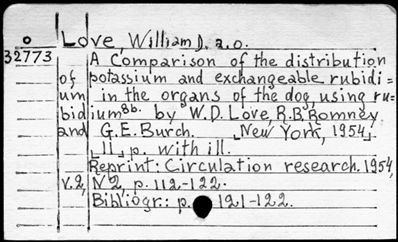 o Love, William D. a.o.
32773 A Comparison of the distribution
of potassium and exchangeable rubidi=
um in the organs of the dog, using ru=
bidium86. by W.D. Love, R.B. Romney
and G.E. Burch. [New York, 1954].
[11] p. with ill.
Reprint: Circulation research. 1954,
V.2, N2, p. 112-122.
Bibliogr: p. 121-122.